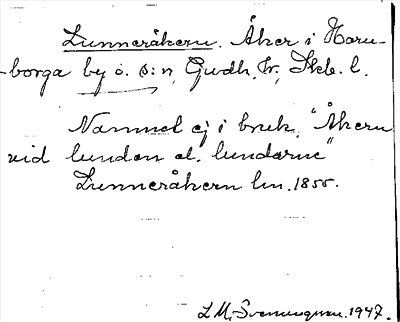 Lunneråkern. Åker i Horn-
borga by o. s:n, Gudh. hr, Skb. l.
Namnet ej i bruk. "Åkern
vid lunden el. lundarne"
Lunneråkern lm. 1855.
L M, Svenungsson. 1947.